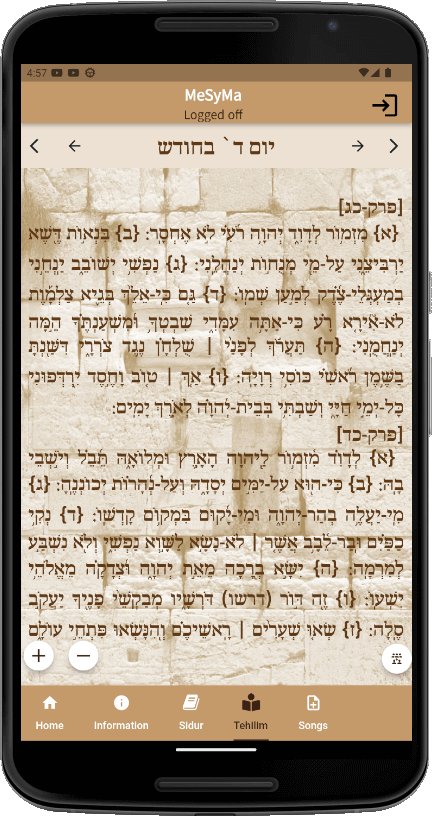 4:57
MeSyMa
Logged off
יום ד` בחודש
[פרק-כג]
{א} מִזְמוֹר לְדָוִד יְהוָה רֹעִי לֹא אֶחְסָר: {ב} בִּנְאוֹת דֶּשֶׁא
יַרְבִּיצֵנִי עַל-מֵי מְנֻחוֹת יְנַהֲלֵנִי: {ג} נַפְשִׁי יְשׁוֹבֵב יַנְחֵנִי
בְמַעְגְּלֵי-צֶדֶק לְמַעַן שְׁמוֹ: {ד} גַּם כִּי-אֵלֵךְ בְּגֵיא צַלְמָוֶת
לֹא-אִירָא רָע כִּי-אַתָּה עִמָּדִי שִׁבְטְךָ וּמִשְׁעַנְתֶּךָ הֵמָּה
יְנַחֲמֻנִי: {ה} תַּעֲרֹךְ לְפָנַי | שֻׁלְחָן נֶגֶד צֹרְרָי דִּשַּׁנְתָּ
בַשֶּׁמֶן רֹאשִׁי כּוֹסִי רְוָיָה: {ו} אַךְ | טוֹב וָחֶסֶד יִרְדְּפוּנִי
כָּל-יְמֵי חַיָּי וְשַׁבְתִּי בְּבֵית-יְהוָה לְאֹרֶךְ יָמִים:
[פרק-כד]
{א} לְדָוִד מִזְמוֹר לַיהוָה הָאָרֶץ וּמְלוֹאָהּ תֵּבֵל וְיֹשְׁבֵי
בָהּ: {ב} כִּי-הוּא עַל-יַמִּים יְסָדָהּ וְעַל-נְהָרוֹת יְכוֹנְנֶהָ: {ג}
מִי-יַעֲלֶה בְהַר-יְהוָה וּמִי-יָקוּם בִּמְקוֹם קָדְשׁוֹ: {ד} נְקִי
כַפַּיִם וּבַר-לֵבָב אֲשֶׁר | לֹא-נָשָׂא לַשָּׁוְא נַפְשִׁי וְלֹא נִשְׁבַּע
לְמִרְמָה: {ה} יִשָּׂא בְרָכָה מֵאֵת יְהוָה וּצְדָקָה מֵאֱלֹהֵי
יִשְׁעוֹ: {ו} זֶה דּוֹר (דרשו) דֹּרְשָׁיו מְבַקְשֵׁי פָנֶיךָ יַעֲקֹב
סֶלָה: {ז} שְׂאוּ שְׁעָרִים | רָאשֵׁיכֶם וְהִנָּשְׂאוּ פִּתְחֵי עוֹלָם
Home Information Sidur Tehilim Songs